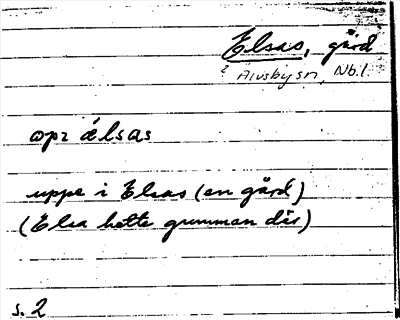 Elsas, gård
i Älvsbyn, Nb.l.
åpr álsas
uppe i Elsas (en gård)
(Elsa hette gumman där)
s. 2